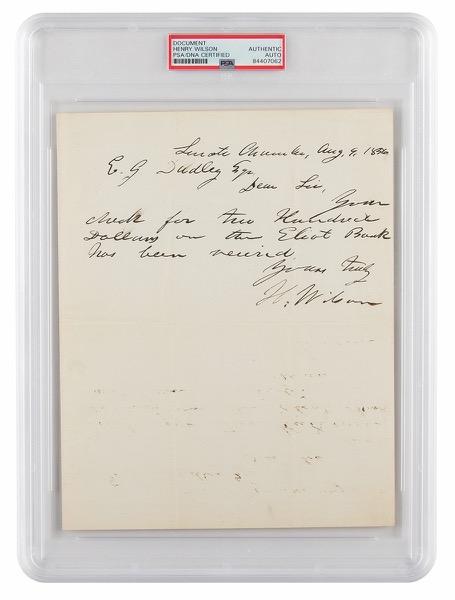 DOCUMENT AUTHENTIC
HENRY WILSON AUTO
PSA/DNA CERTIFIED PSA 84407062
Senate Chamber, Aug. 9, 1856
E. G Dudley Esq,
Dear Sir,
Your
check for two Hundred
Dollars on the Eliot Bank
has been received
Yours truly
H. Wilson